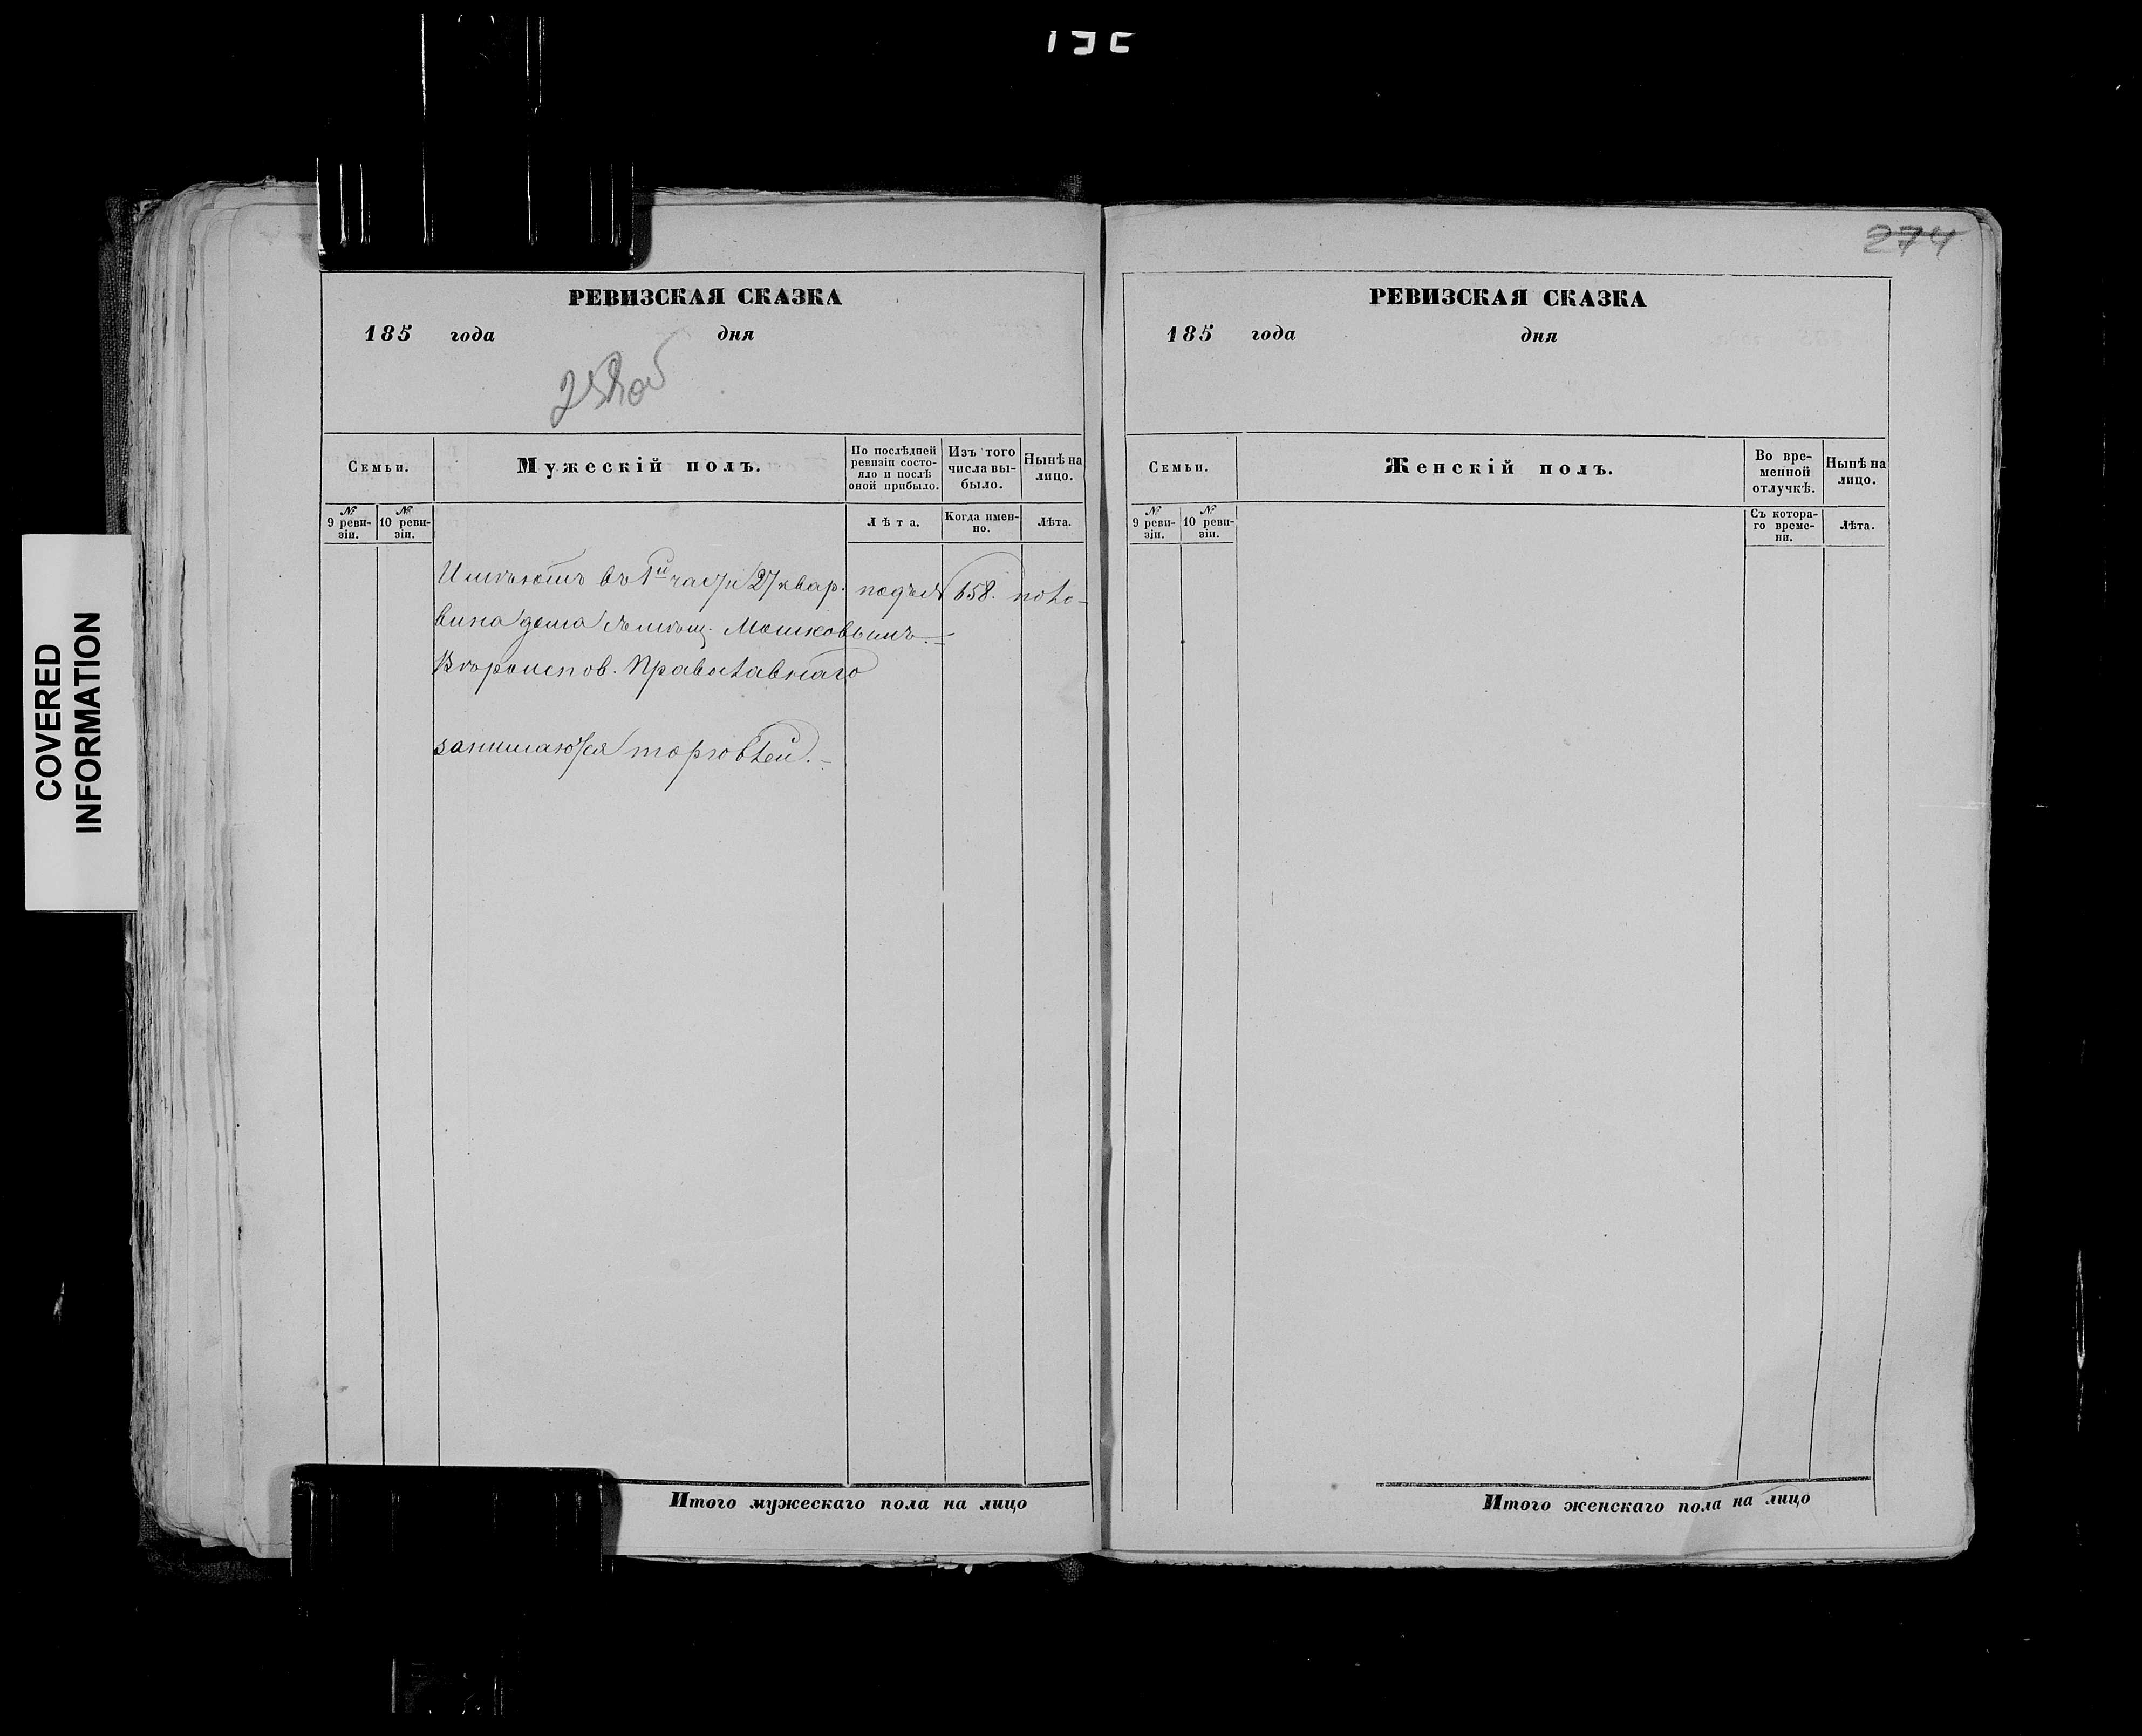 РЕВИЗСКАЯ СКАЗКА
185 года дня
Семьи.
Мужескій полъ.
По послѣдней ревизіи состо-
яло и послѣ
оной прибыло.
Изъ того
числа вы-
было.
Нынѣ на
лицо.
№
9 реви-
зіи.
№
10 реви-
зіи.
Лѣта.
Когда имен-
но.
Лѣта.
Имѣютъ въ 1й части 27 квар. подъ № 658. поло-
вина дома съ мѣщ. Мошковымъ.
Вѣроиспов. Православнаго
занимаются торговлей.
Итого мужескаго пола на лицо
274
РЕВИЗСКАЯ СКАЗКА
185 года дня
Семьи.
Женскій полъ.
Во вре-
менной
отлучкѣ.
Нынѣ на
лицо.
№
9 реви-
зіи.
№
10 реви-
зіи.
Съ котора-
го време-
ни.
Лѣта.
Итого женскаго пола на лицо
COVERED
INFORMATION